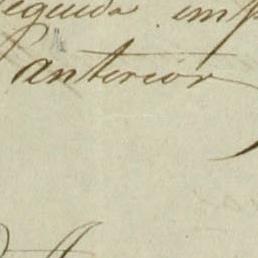 seguida imp
anterior